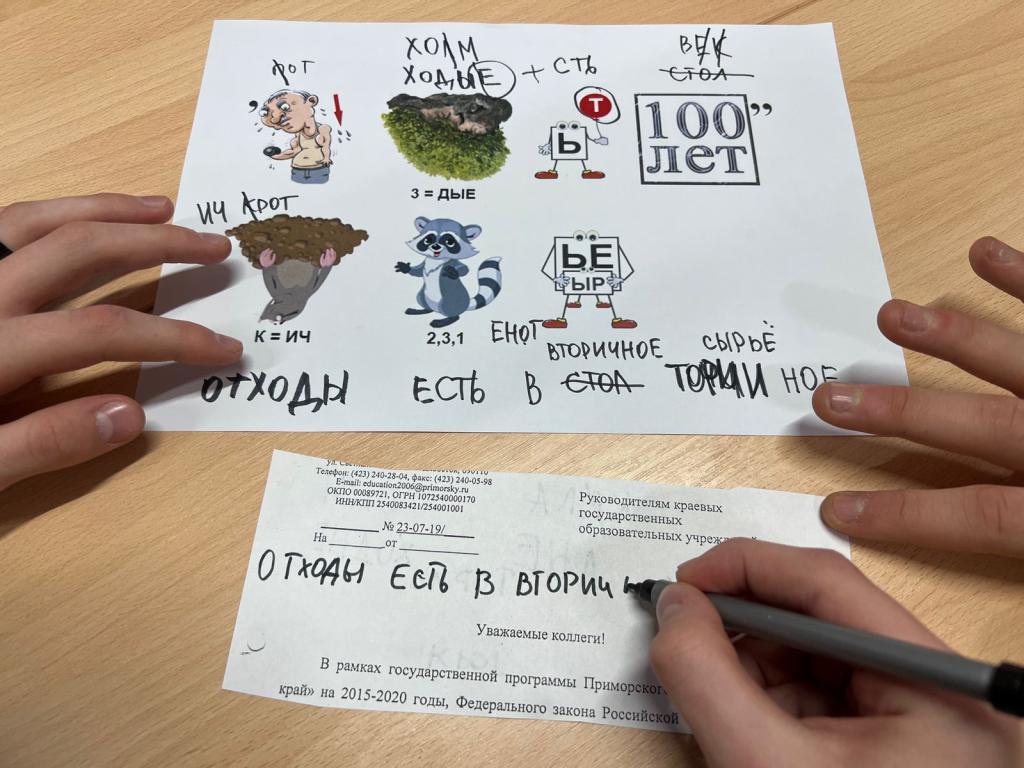 ХОЛМ
ПОТ
ХОДЫЕ + СТЬ
ВЕК
СТОЛ
,
Т
Ь
100 ”
лет
3 = ДЫЕ
ИЧ КРОТ
ЬЕ
ЫР
К = ИЧ
2,3,1
ЕНОТ
ВТОРИЧНОЕ
СЫРЬЁ
ОТХОДЫ ЕСТЬ В СТОЛ ТОРИЧИ НОЕ
Телефон: (423) 240-28-04, факс: (423) 240-05-98
E-mail: education2006@primorsky.ru
ОКПО 00089721, ОГРН 1072540000170
ИНН/КПП 2540083421/254001001
№ 23-07-19/
На от
Руководителям краевых
государственных
образовательных
ОТХОДЫ ЕСТЬ В ВТОРИЧ
Уважаемые коллеги!
В рамках государственной программы
край» на 2015-2020 годы, Федерального закона Российской